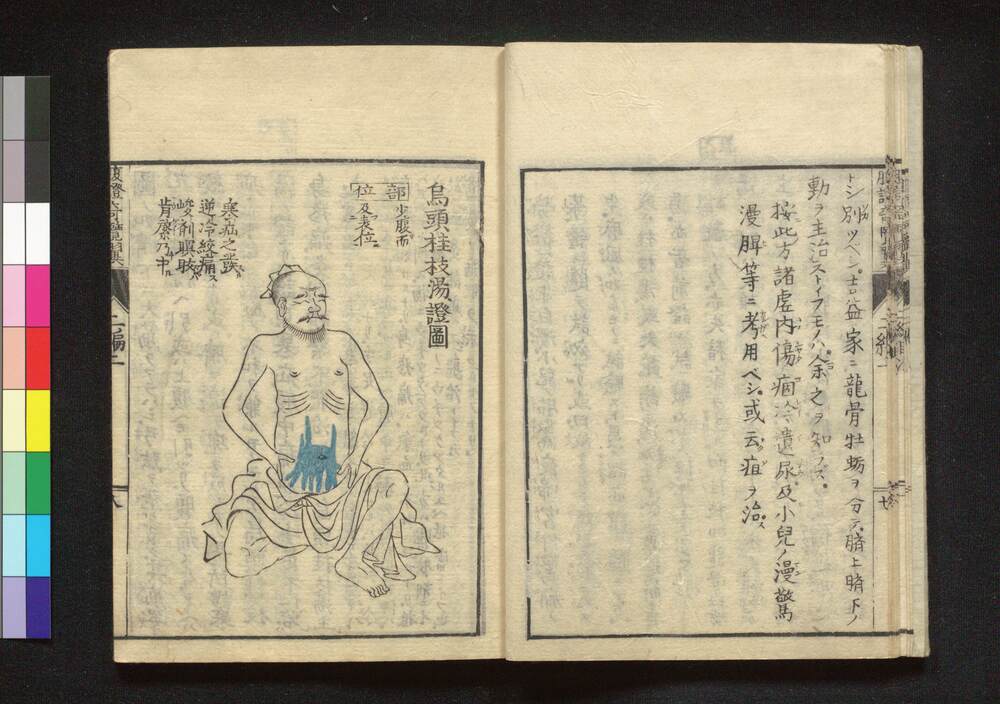 トシ別ツベシ吉益家ニ龍骨牡蛎ヲ分テ臍上臍下ノ
動ヲ主治ストイフモノハ余之ヲ知ラズ
按此方諸虚内傷痼冷遺尿及小兒ノ漫驚
漫脾等ニ考用ベシ或云疽ヲ治ス
烏頭桂枝湯證圖
部少腹而
位及表位
寒疝之發
逆冷絞痛ス
峻剤瞑眩
二編上
八